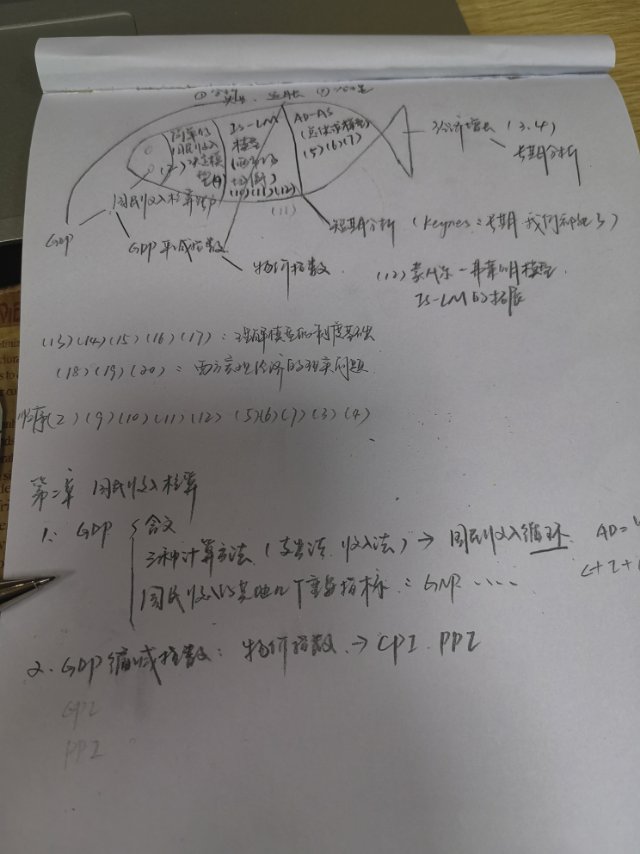 简单的 IS-LM AD-AS
国民收入 模型 (总供求模型)
(2) 决定模型(9) (5)(6)(7)
(10)(11)(12)
(11)
经济增长 (3.4)
长期分析
国民收入核算
GDP
GDP平减指数
物价指数
短期分析 (Keynes:长期 我们都死了)
(12) 蒙代尔-弗莱明模型
IS-LM的拓展
(13)(14)(15)(16)(17):理解模型的制度基础
(18)(19)(20):西方宏观经济的现实问题
顺序(2)(9)(10)(11)(12) (5)(6)(7)(3)(4)
第二章 国民收入核算
1. GDP 含义
三种计算方法(支出法 收入法)→国民收入循环 AD=
国民收入的其他几个重要指标:GNP ....
C+I+
2. GDP缩减指数:物价指数→CPI.PPI
CPI
PPI